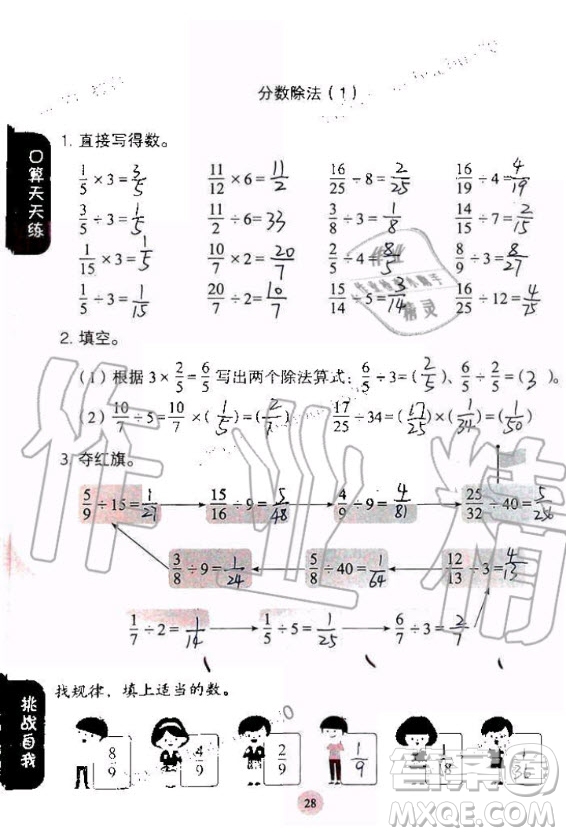 分数除法(1)
口算天天练
1. 直接写得数。
1/5 × 3 = 3/5 11/12 × 6 = 11/2 16/25 ÷ 8 = 2/25 16/19 ÷ 4 = 4/19
3/5 ÷ 3 = 1/5 11/2 ÷ 6 = 33 3/8 ÷ 3 = 1/8 14/15 ÷ 7 = 2/15
1/15 × 3 = 1/5 10/7 × 2 = 20/7 2/5 ÷ 4 = 8/5 8/9 ÷ 3 = 8/27
1/5 ÷ 3 = 1/15 20/7 ÷ 2 = 10/7 15/14 ÷ 5 = 3/14 16/25 ÷ 12 = 4/75
2. 填空。
(1) 根据 3 × 2/5 = 6/5 写出两个除法算式: 6/5 ÷ 3 = (2/5)、6/5 ÷ 2/5 = (3)。
(2) 10/7 ÷ 5 = 10/7 × (1/5) = (2/7) 17/25 ÷ 34 = (17/25) × (1/34) = (1/50)
3. 夺红旗。
5/9 ÷ 15 = 1/27 15/16 ÷ 9 = 5/48 4/9 ÷ 9 = 4/81 25/32 ÷ 40 = 5/256
3/8 ÷ 9 = 1/24 5/8 ÷ 40 = 1/64 12/13 ÷ 3 = 4/13
1/7 ÷ 2 = 1/14 1/5 ÷ 5 = 1/25 6/7 ÷ 3 = 2/7
挑战自我
找规律，填上适当的数。
8/9 4/9 2/9 1/9 1/18 1/36
28
作业精
作业
精灵
答案圈
MXQE.COM